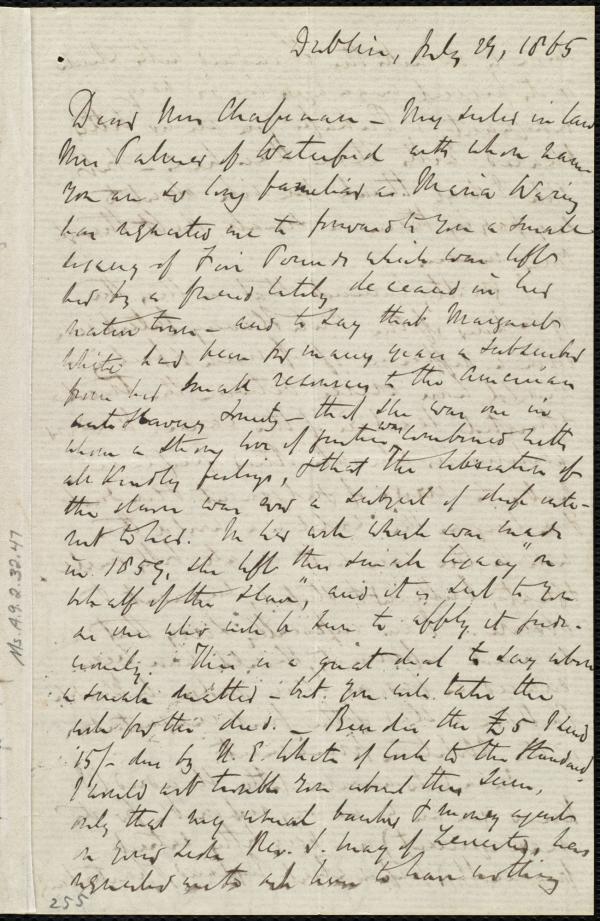 Dublin, July 29, 1865
Dear Mrs Chapman - My sister in law
Mrs Palmer of Waterford with whose name
you are so long familiar as Maria Waring
has requested me to forward to you a small
legacy of Five Pounds which was left
her by a friend lately deceased in her
native town - and to say that Margaret
White had been for many years a subscriber
from her small resources to the American
anti Slavery Society - that she was one in
whom a strong love of justice was combined with
all kindly feelings, & that the liberation of
the slaves was ever a subject of deep inte-
rest to her. In her will which was made
in 1859, she left this small legacy "on
behalf of the Slave", and it is sent to you
as one who will be sure to apply it judi-
ciously. This is a great deal to say about
a small matter - but you will take the
will for the deed. - Besides the £5 I send
15/- due by H. E. White of Cork to the Standard.
I would not trouble you about this sum,
only that my usual banker & money agent
on your side Rev. S. May of Leicester, has
requested me to ask him to have nothing
Ms. A.9.2.32.47
255